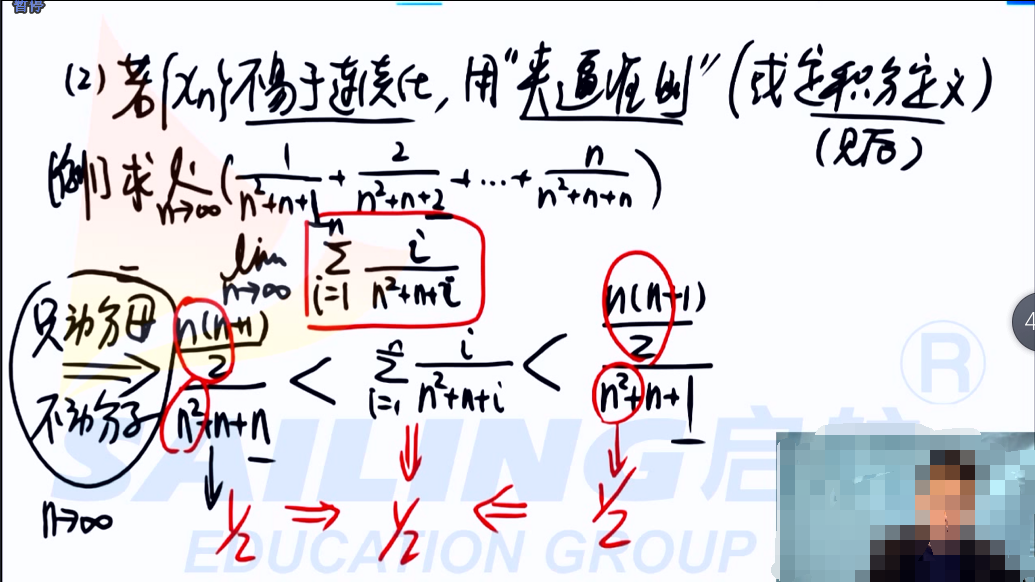 暂停
(2) 若{xn}不易于连续化, 用"夹逼准则" (或定积分定义)
(见后)
[例1] 求 lim n→∞ ( 1/(n²+n+1) + 2/(n²+n+2) + … + n/(n²+n+n) )
lim n→∞ Σ i=1 n i/(n²+n+i)
只动分母
不动分子
⇒ (n(n+1)/2)/(n²+n+n) < Σ i=1 n i/(n²+n+i) < (n(n+1)/2)/(n²+n+1)
n→∞ ↓ 1/2 ⇒ ⇓ 1/2 ⇐ ↓ 1/2
SAILING 启航 ®
EDUCATION GROUP
4